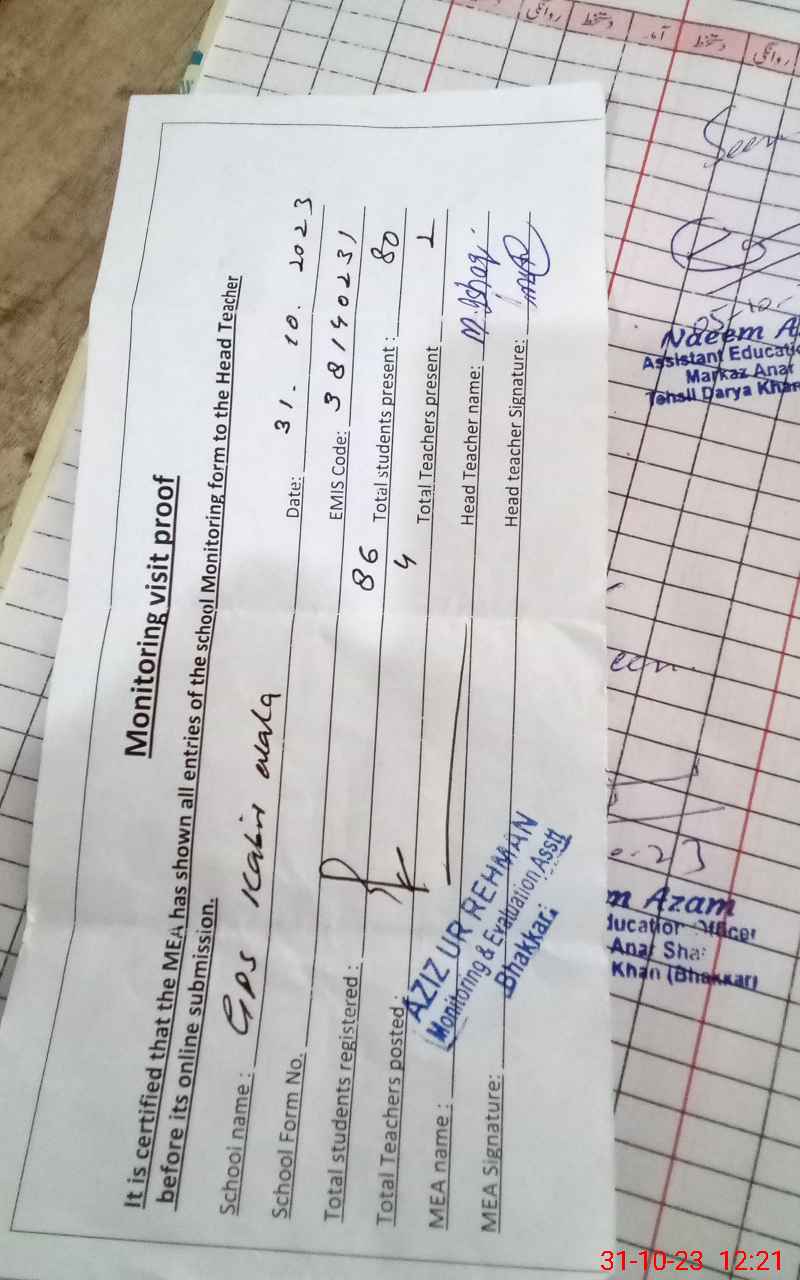 Monitoring visit proof
It is certified that the MEA has shown all entries of the school Monitoring form to the Head Teacher
before its online submission.
School name : GPS Kabir wala
School Form No. Date: 31. 10. 2023
Total students registered : 86 EMIS Code: 38140231
Total Teachers posted 4 Total students present : 80
MEA name : Total Teachers present 2
MEA Signature: Head Teacher name: M. Ishaq
Head teacher Signature:
AZIZ UR REHMAN
Monitoring & Evaluation Asstt
Bhakkar
روانگی دستخط آمد دستخط روانگی
Seen
05-10-
Naeem A
Assistant Educati
Markaz Anar
Tehsil Darya Khan
een
0-23
m Azam
ducation Officer
Anar Sha
Khan (Bhakkar)
31-10-23 12:21